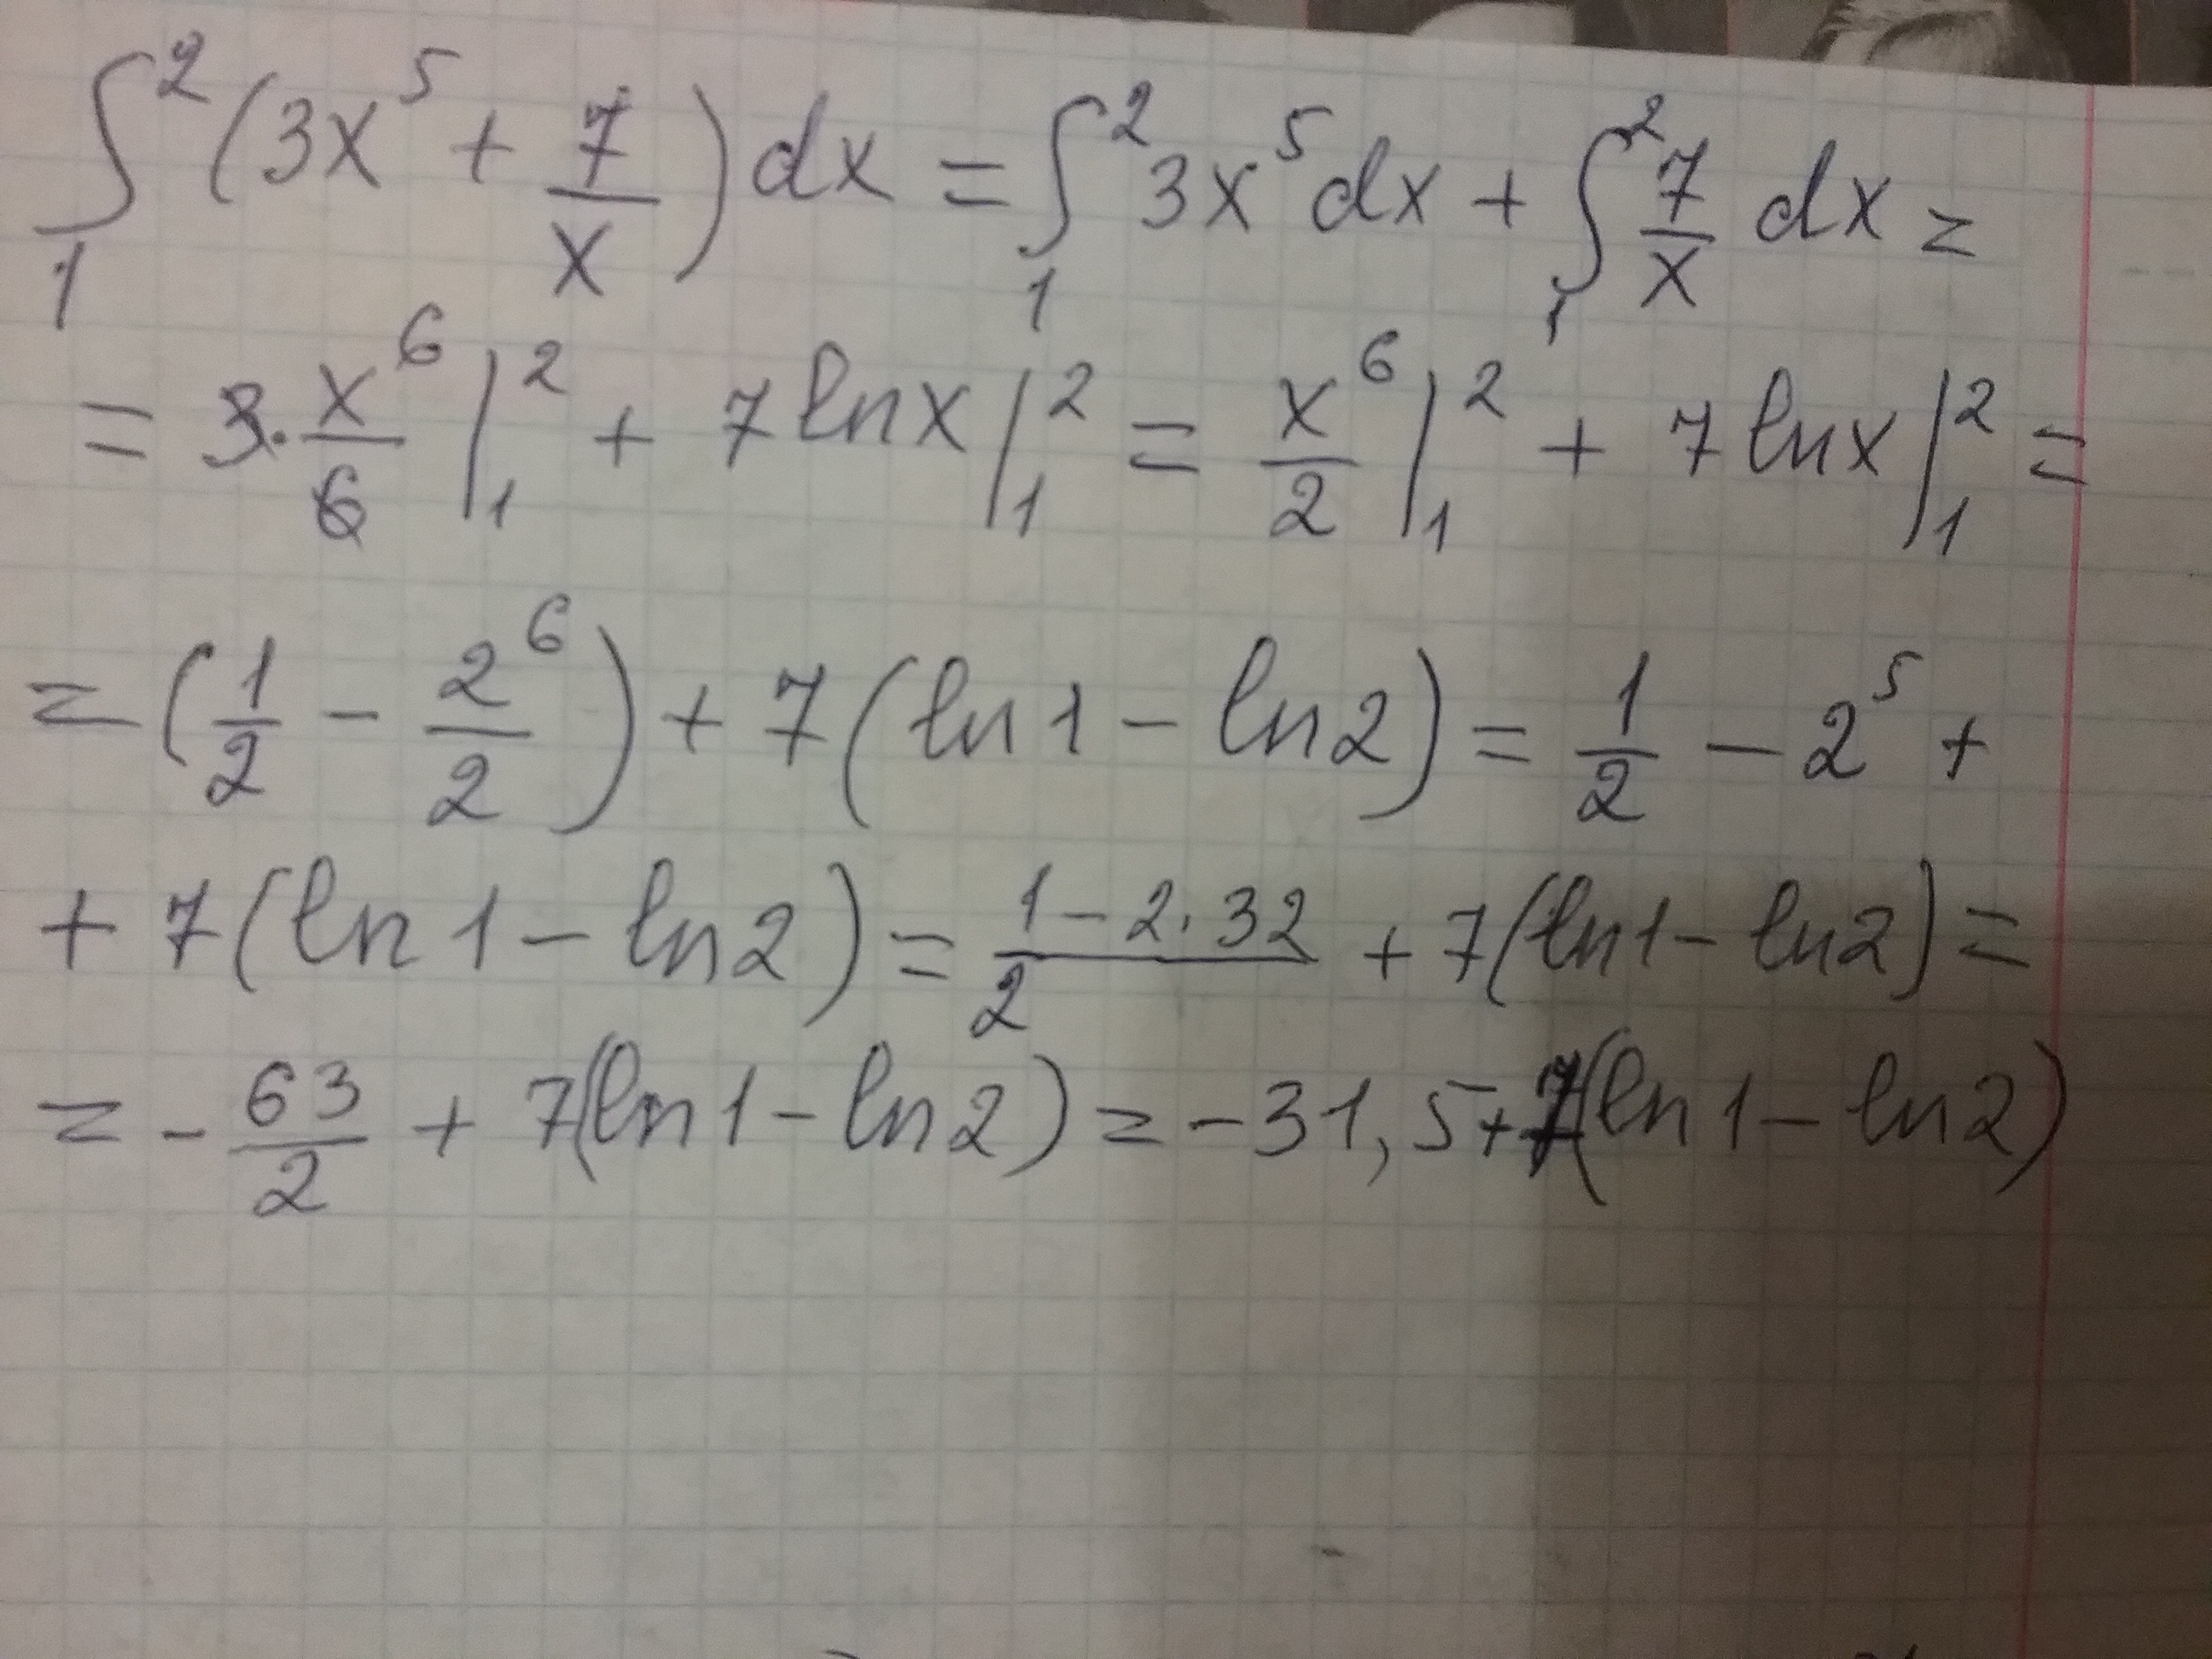 ∫₁² (3x⁵ + 7/x) dx = ∫₁² 3x⁵ dx + ∫₁² 7/x dx =
= 3 · x⁶/6 |₁² + 7 ln x |₁² = x⁶/2 |₁² + 7 ln x |₁² =
= (1/2 − 2⁶/2) + 7 (ln 1 − ln 2) = 1/2 − 2⁵ +
+ 7 (ln 1 − ln 2) = (1 − 2 · 32)/2 + 7 (ln 1 − ln 2) =
= − 63/2 + 7 (ln 1 − ln 2) = − 31,5 + 7 (ln 1 − ln 2)